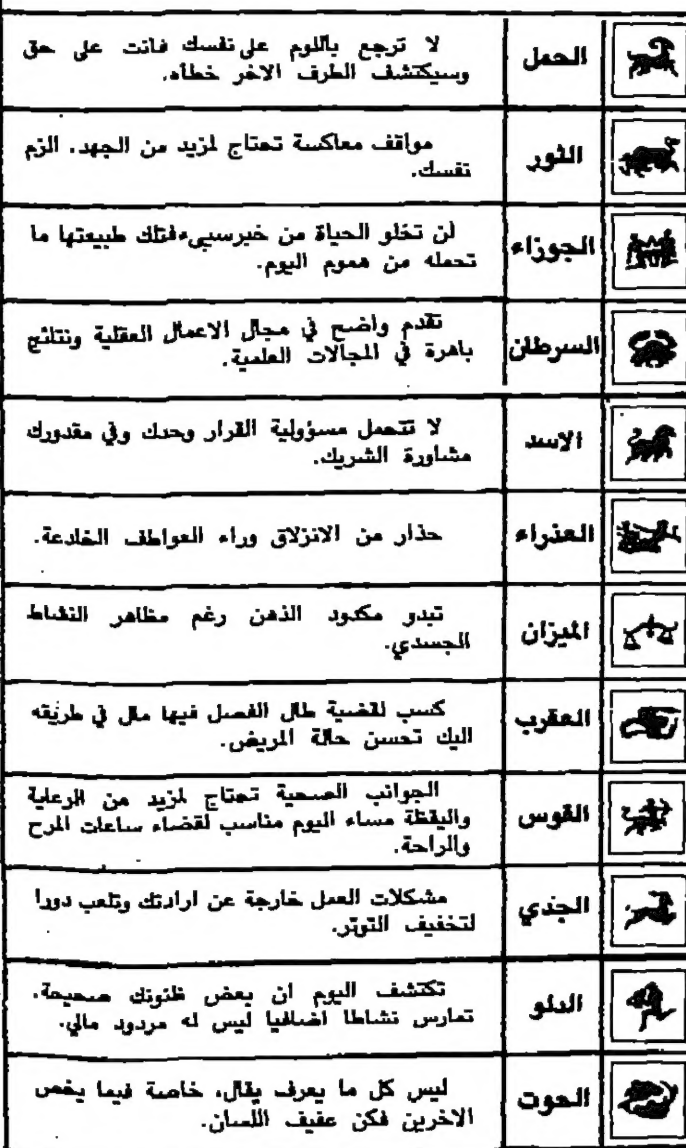 الحمل
لا ترجع باللوم على نفسك فانت على حق
وسيكتشف الطرف الاخر خطأه.
الثور
مواقف معاكسة تحتاج لمزيد من الجهد. الزم
نفسك.
الجوزاء
لن تخلو الحياة من خبرسيىء،فتلك طبيعتها ما
تحمله من هموم اليوم.
السرطان
تقدم واضح في مجال الاعمال العقلية ونتائج
باهرة في المجالات العلمية.
الاسد
لا تتحمل مسؤولية القرار وحدك وفي مقدورك
مشاورة الشريك.
العذراء
حذار من الانزلاق وراء العواطف الخادعة.
الميزان
تبدو مكدود الذهن رغم مظاهر النشاط
الجسدي.
العقرب
كسب لقضية طال الفصل فيها مال في طريقه
اليك تحسن حالة المريض.
القوس
الجوانب الصحية تحتاج لمزيد من الرعاية
واليقظة مساء اليوم مناسب لقضاء ساعات المرح
والراحة.
الجدي
مشكلات العمل خارجة عن ارادتك وتلعب دورا
لتخفيف التوتر.
الدلو
تكتشف اليوم ان بعض ظنونك صحيحة.
تمارس نشاطا اضافيا ليس له مردود مالي.
الحوت
ليس كل ما يعرف يقال، خاصة فيما يخص
الاخرين فكن عفيف اللسان.